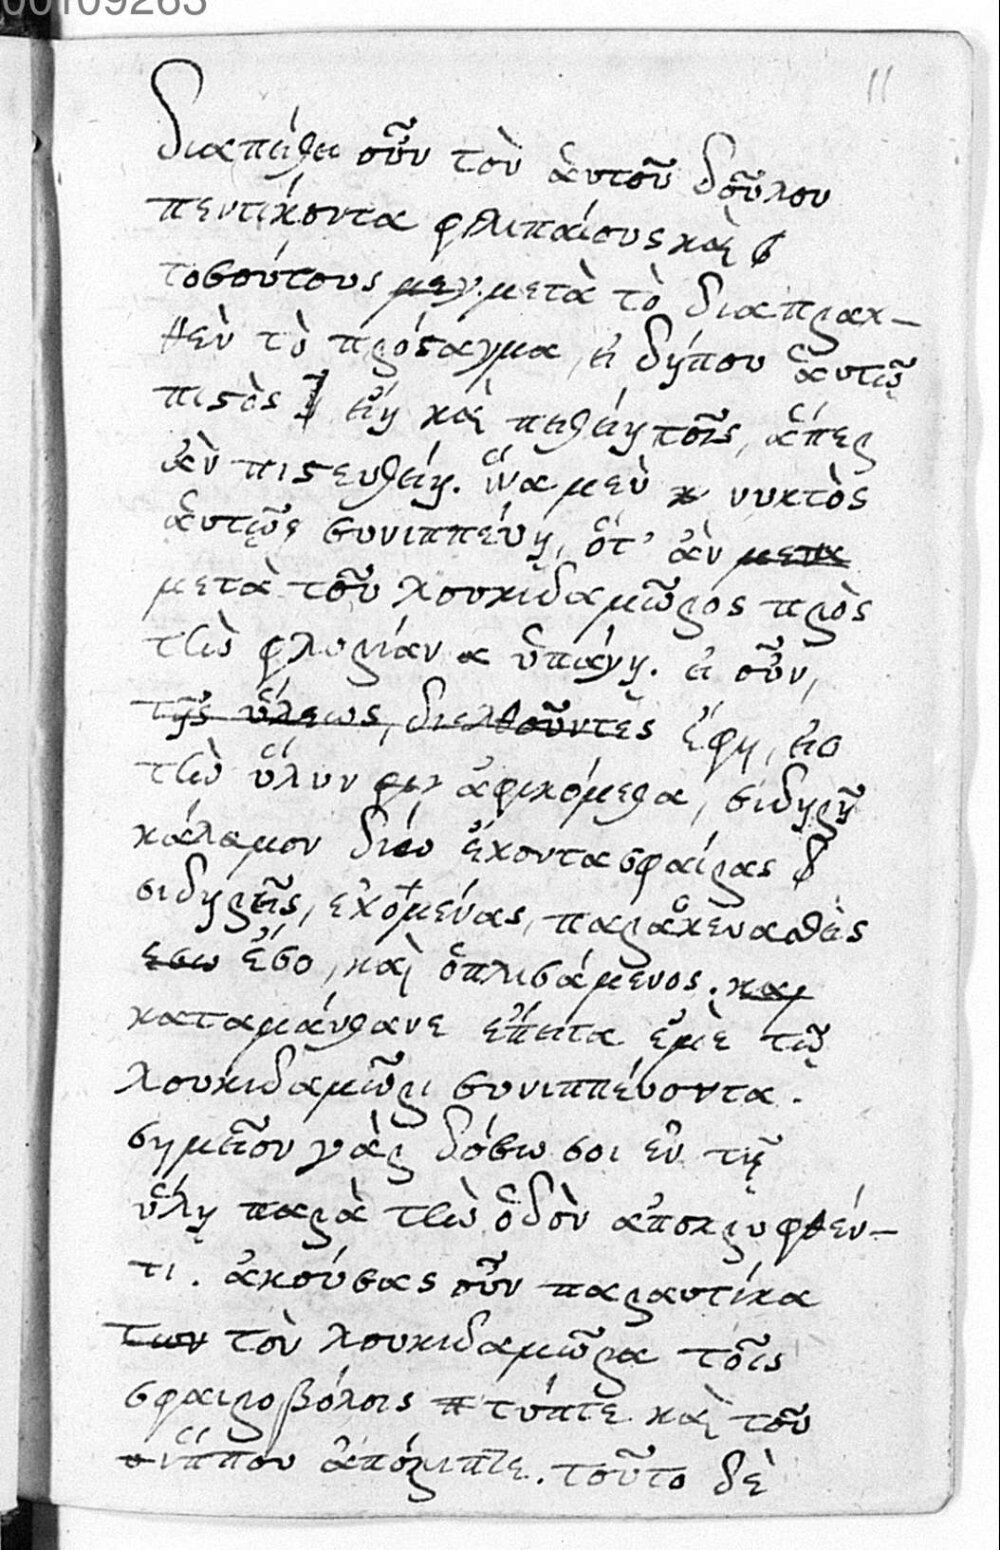 00109263
11
διαπείθει οὖν τὸν ἁυτοῦ δοῦλον
πεντίκοντα φιλιπαίους καὶ
τοσούτους μεν μετὰ τὸ διαπραχ-
θὲν τὸ πρόσταγμα, εἰ δήπου ἁυτῷ
πιστὸς εἴη καὶ πειθείη τοῖς, ἅπερ
ἂν πιστευθείη. ἵνα μὲν νυκτὸς
ἁυτῷ συνιππεύῃ, ὅτ' ἂν
μετὰ τοῦ λουκιδαμῶρος πρὸς
τὴν φλωρίαν ὑπάγῃ. εἰ οὖν,
τῆς ὕλεως, διελθοῦντες ἔφη, εἰσ
τὴν ὕλυν ἀφικόμεθα, σιδηρῆ
κάλαμον δύο ἔχοντα σφαίρας
σιδηρεῖς, ἐχομένας, παρασκευασθεὶς
εσω ἔσο, καὶ ὁπλισάμενος. και
καταμάνθανε ἔπειτα ἐμὲ τῷ
λουκιδαμῶρι συνιππέυοντα.
σημεῖον γὰρ δόσω σοι ἐν τῇ
ὕλῃ παρὰ τὴν ὁδὸν ἀποκρυφθέν-
τι. ἀκούσας οὖν παραυτίκα
των τὸν λουκιδαμῶρα τοῖς
σφαιροβόλοις τύπτε καὶ τοῦ
ἵππου ἀπόριπτε. τοῦτο δὲ